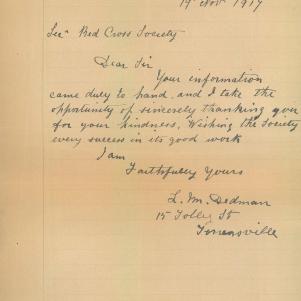 19 Nov 1917
Secy Red Cross Society
Dear Sir
Your information
came duly to hand, and I take the
opportunity of sincerely thanking you
for your kindness, Wishing the Society
every success in its good work
I am
Faithfully Yours
L. M. Dedman
15 Jolley St
Torrensville